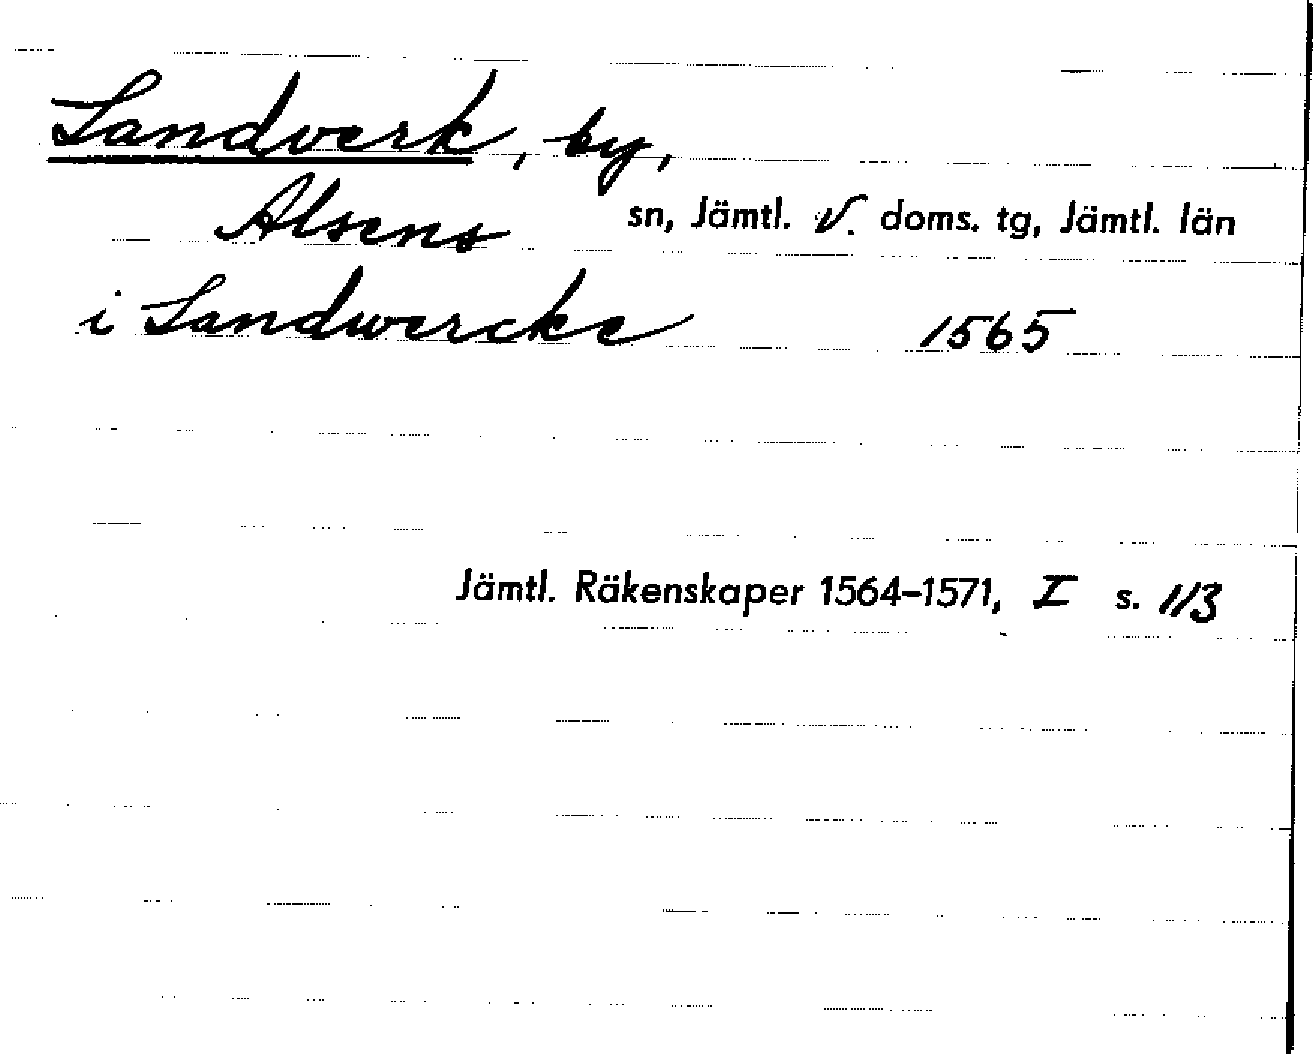 Landverk, by,
Alsens sn, Jämtl. V. doms. tg, Jämtl. län
i Landwercke 1565
Jämtl. Räkenskaper 1564–1571, I s. 113